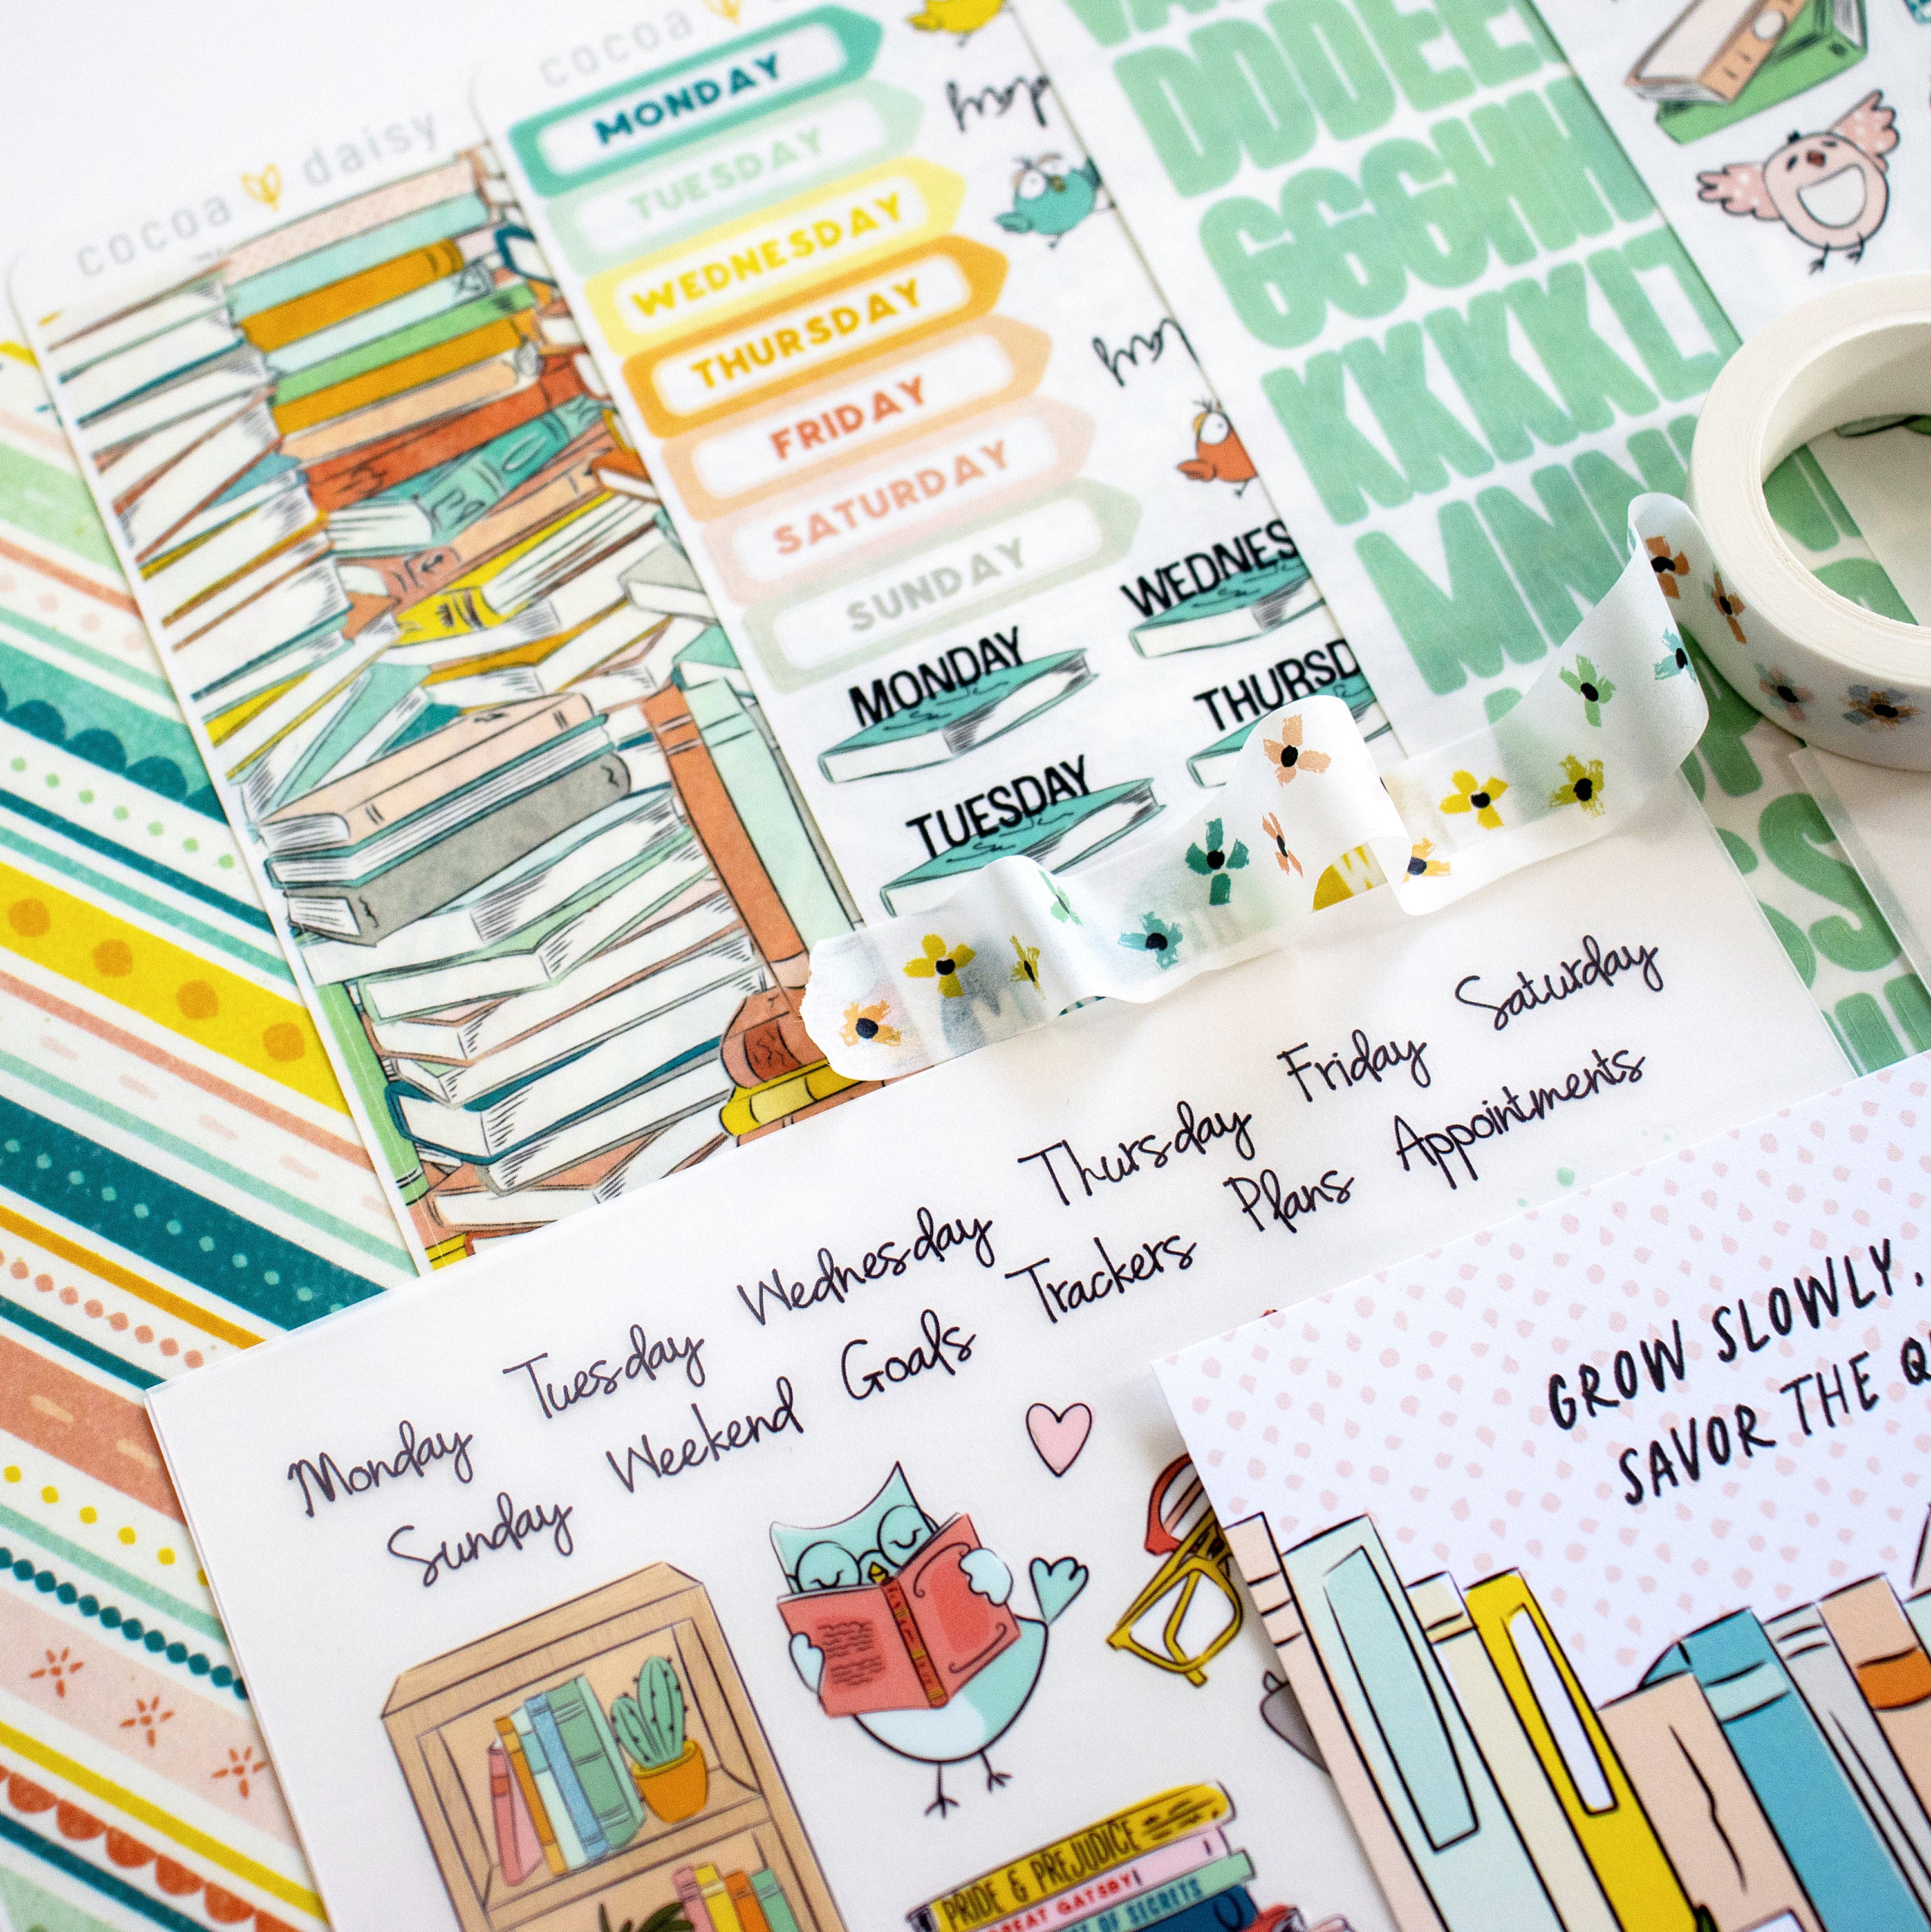 cocoa daisy
cocoa
MONDAY
TUESDAY
WEDNESDAY
THURSDAY
FRIDAY
SATURDAY
SUNDAY
MONDAY
TUESDAY
WEDNES
THURSD
DDDEE
GGGHH
KKKK
MNN
Monday Tuesday Wednesday Thursday Friday Saturday
Sunday Weekend Goals Trackers Plans Appointments
GROW SLOWLY.
SAVOR THE Q
PRIDE & PREJUDICE
GREAT GATSBY
OF SECRETS